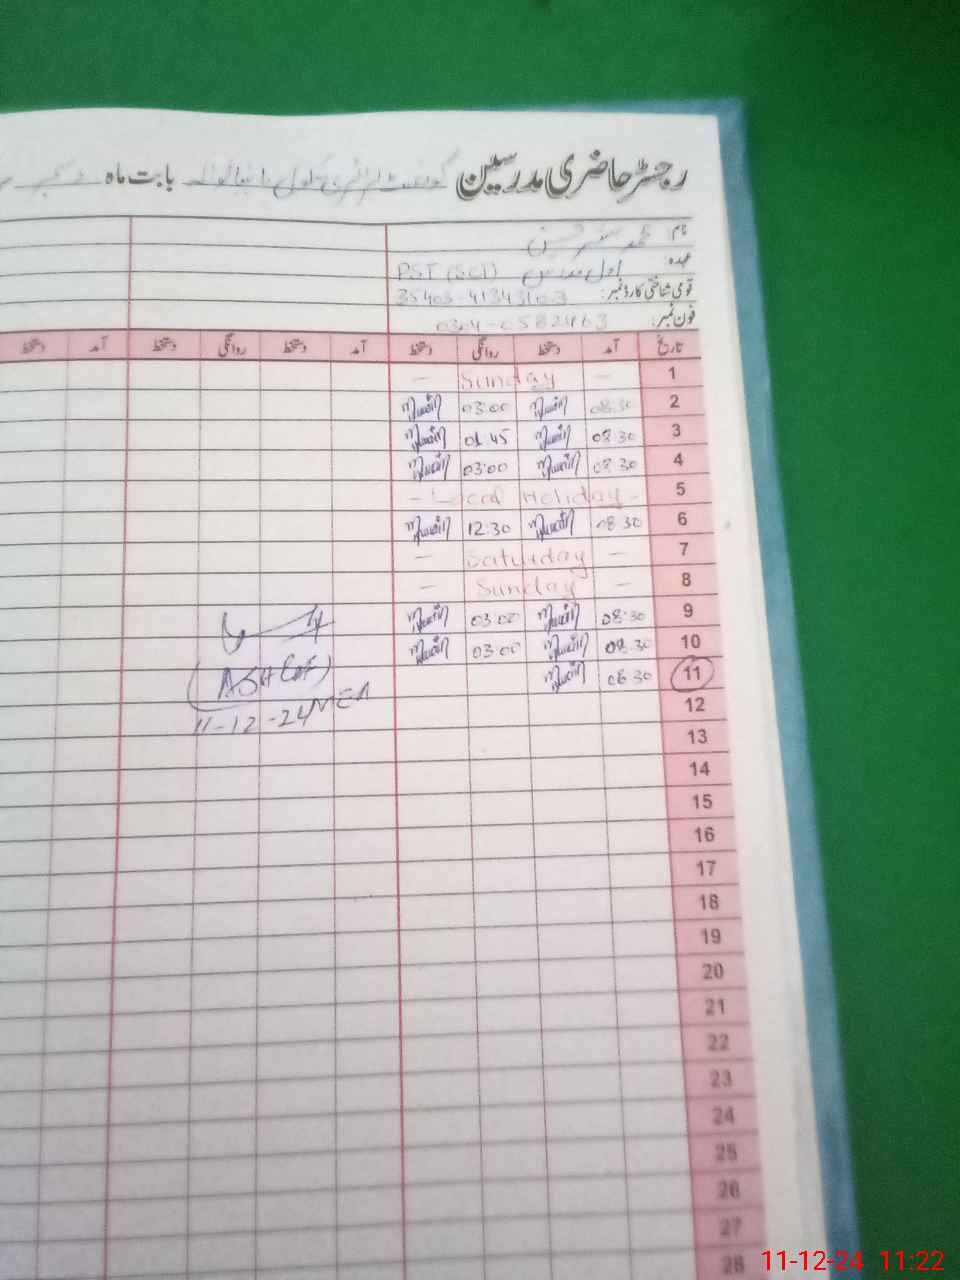 رجسٹر حاضری مدرسین گورنمنٹ پرائمری سکول بابت ماہ دسمبر
نام: محمد
عہدہ: اول مدرس PST (SCT)
قومی شناختی کارڈ نمبر:
فون نمبر: 0304-0582463
تاریخ آمد دستخط روانگی دستخط آمد دستخط روانگی دستخط آمد دستخط
1 — Sunday —
2 08:30 03:00
3 08:30 01:45
4 08:30 03:00
5 - Local Holiday -
6 08:30 12:30
7 — Saturday —
8 — Sunday —
9 08:30 03:00
10 08:30 03:00
11 08:30
(ASHRAF)
MEA
11-12-24
12
13
14
15
16
17
18
19
20
21
22
23
24
25
26
27
28
11-12-24 11:22